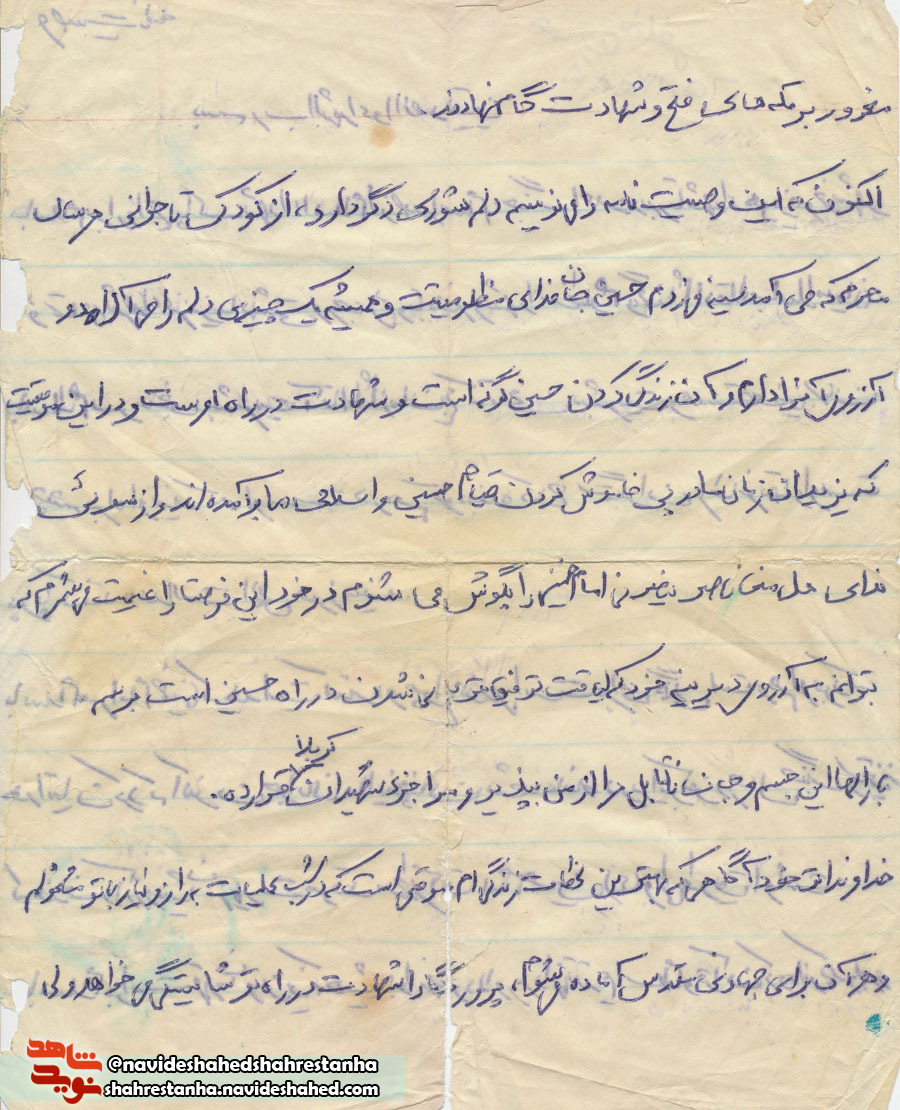 وصیت نامه
مغرور بر مکه های فتح و شهادت گام نهادند.
اکنون که این وصیت نامه را می نویسم دلم شوری دگر دارد، از کودکی تا جوانی هر سال
محرم که می آمد سینه می زدم حسین جان فدای مظلومیتت و همیشه یک چیزی دلم را می آزارد و
آرزوی آنرا دارم و آن زندگی کردن حسین گونه است و شهادت در راه اوست و در این موقعیت
که یزیدیان زمان ما در پی خاموش کردن قیام حسینی و اسلامی ما برآمده اند و از سویی
ندای هل من ناصر ینصرنی امام خمینی را بگوش می شنوم در خود این فرصت را غنیمت می شمرم که
بتوانم به آرزوی دیرینه خود که لیاقت توفیق قربانی شدن در راه حسین است برسم.
بارالها این جسم و جان ناقابل مرا از من بپذیر و مرا جزء شهیدان کربلا قرار ده.
خداوندا تو خود آگاهی که بهترین لحظات زندگی ام، موقعی است که در شب عملیات به راز و نیاز با تو مشغولم
و هر آن برای جهادی مقدس آماده می شوم، پروردگارا شهادت در راه تو شایستگی می خواهد ولی
شاهد
نوید
@navideshahedshahrestanha
shahrestanha.navideshahed.com